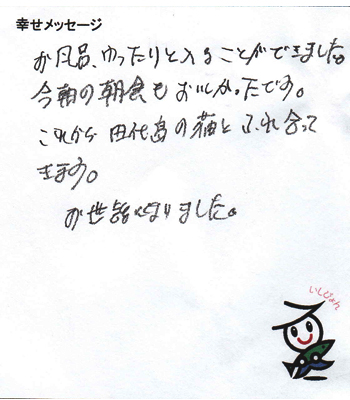 幸せメッセージ
お風呂、ゆったりと入ることができました。
今朝の朝食もおいしかったです。
これから田代島の猫とふれ合って
きます。
お世話になりました。
いしぴょん